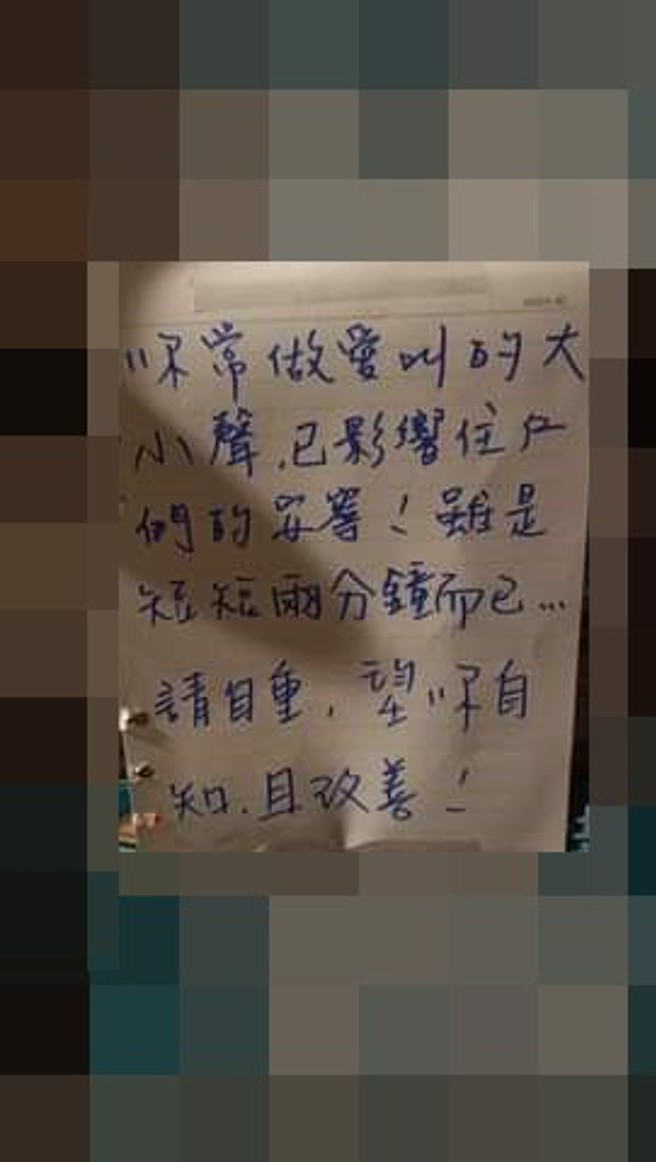 你常做愛叫的大
小聲,已影響住戶
們的安寧!雖是
短短兩分鐘而已...
請自重,望你自
知.且改善!